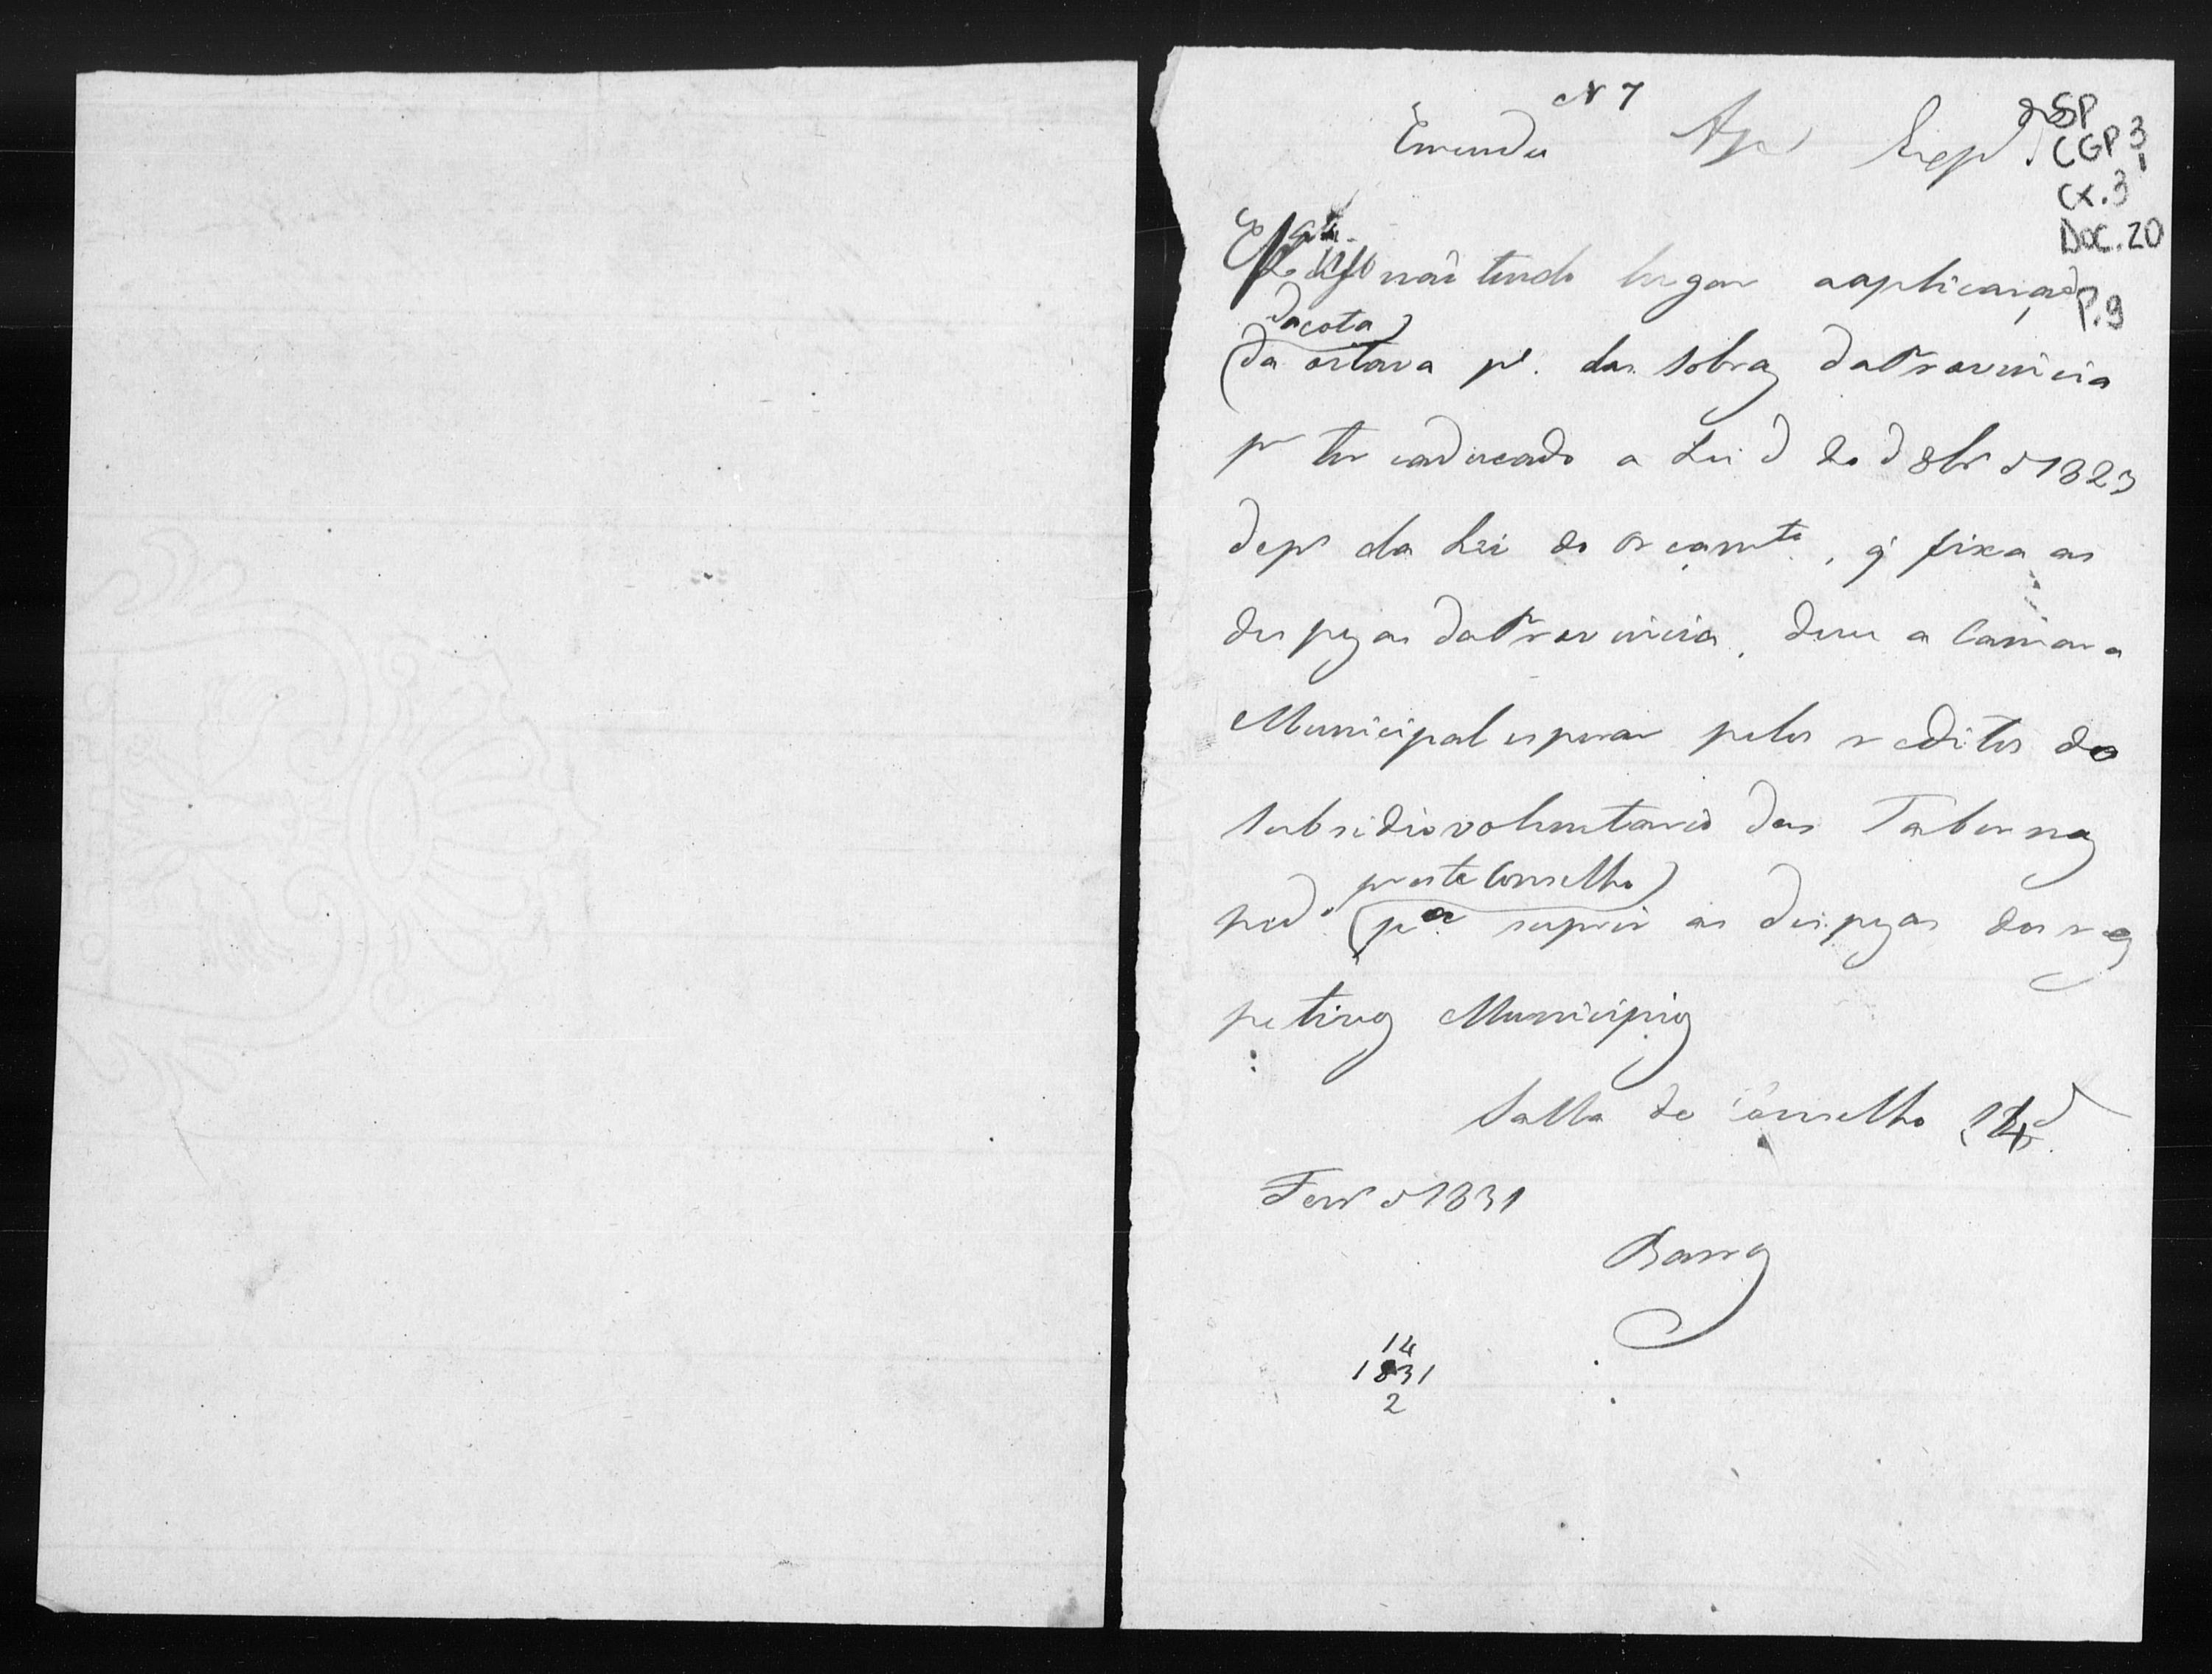 N 7
Emenda Ap. Exp.
SP
CGP 3
1
CX.3
DOC.20
P.9
não tendo lugar aaplicação
dacota
da oitava p.e das sobras daProvincia
pr ter caducado a Lei d 20 d 8br d 1823
dep.s da Lei do orçam.to, q̃ fixa as
despezas daProvincia, deve a Camara
Municipal esperar pelos reditos do
subsidiovoluntario das Tabernas
preste Conselho
ped.o p.a suprir as despezas dos res
petivos Municipios
Salla do Conselho 14 d
Fevr.o d 1831
Barros
14
1831
2